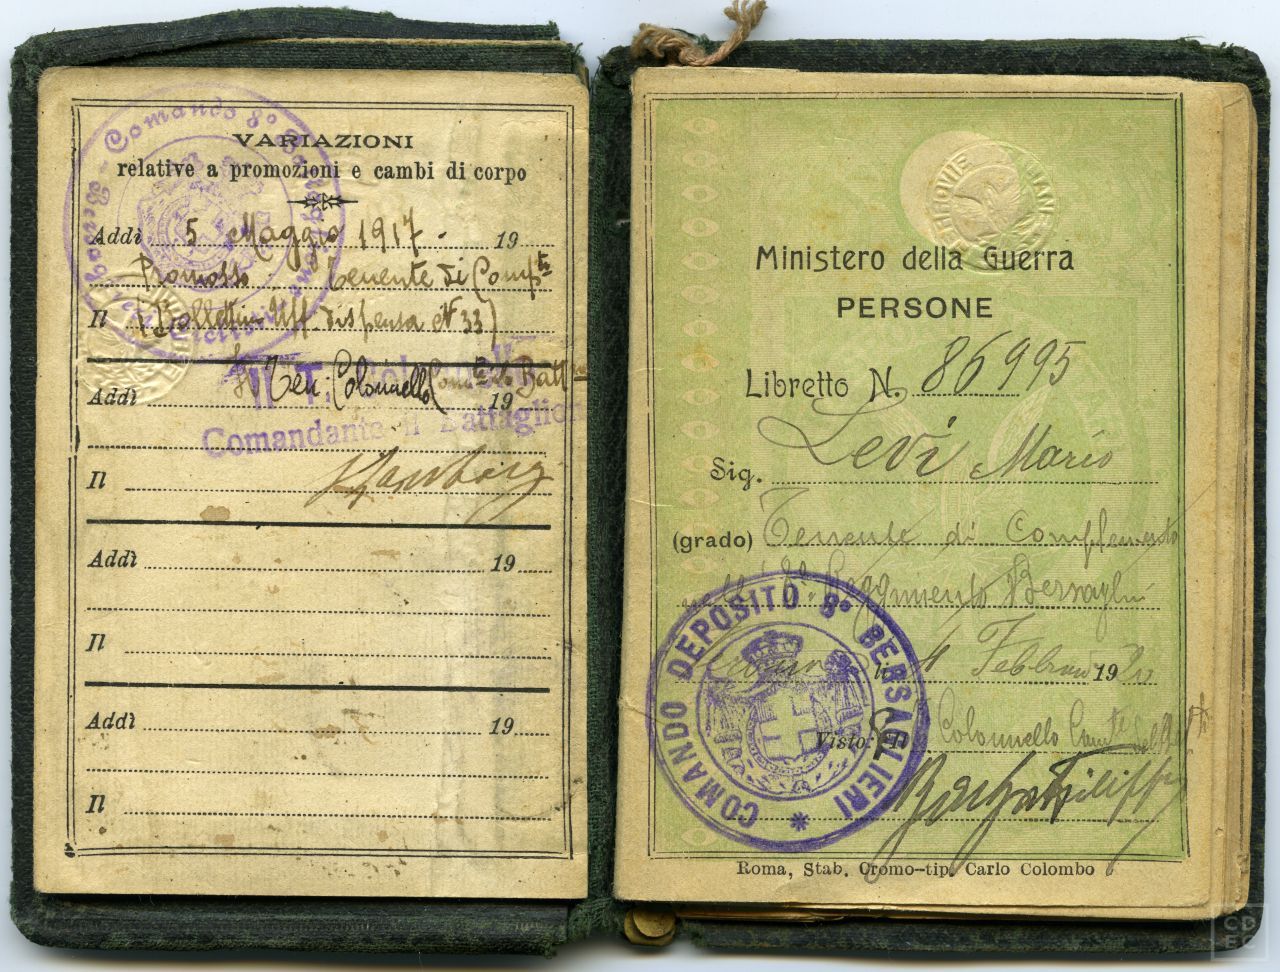 VARIAZIONI
relative a promozioni e cambi di corpo
Addì 5 Maggio 1917. 19
Promosso tenente di Comp.to
Il (Bollettin Uff. dispensa N 33)
Il Ten. Colonnello Com.te il Batt.ne
Addì 19
Comandante il Battaglione
Il
Addì 19
Il
Addì 19
Il
Comando 8°
FERROVIE ITALIANE
Ministero della Guerra
PERSONE
Libretto N. 86995
Sig. Levi Mario
(grado) Tenente di Complemento
8° Reggimento Bersaglieri
li 4 Febbraio 1920
Visto: Il Colonnello Com.te del
Filippo
COMANDO DEPOSITO 8° BERSAGLIERI
Roma, Stab. Cromo-tip. Carlo Colombo
CDEC